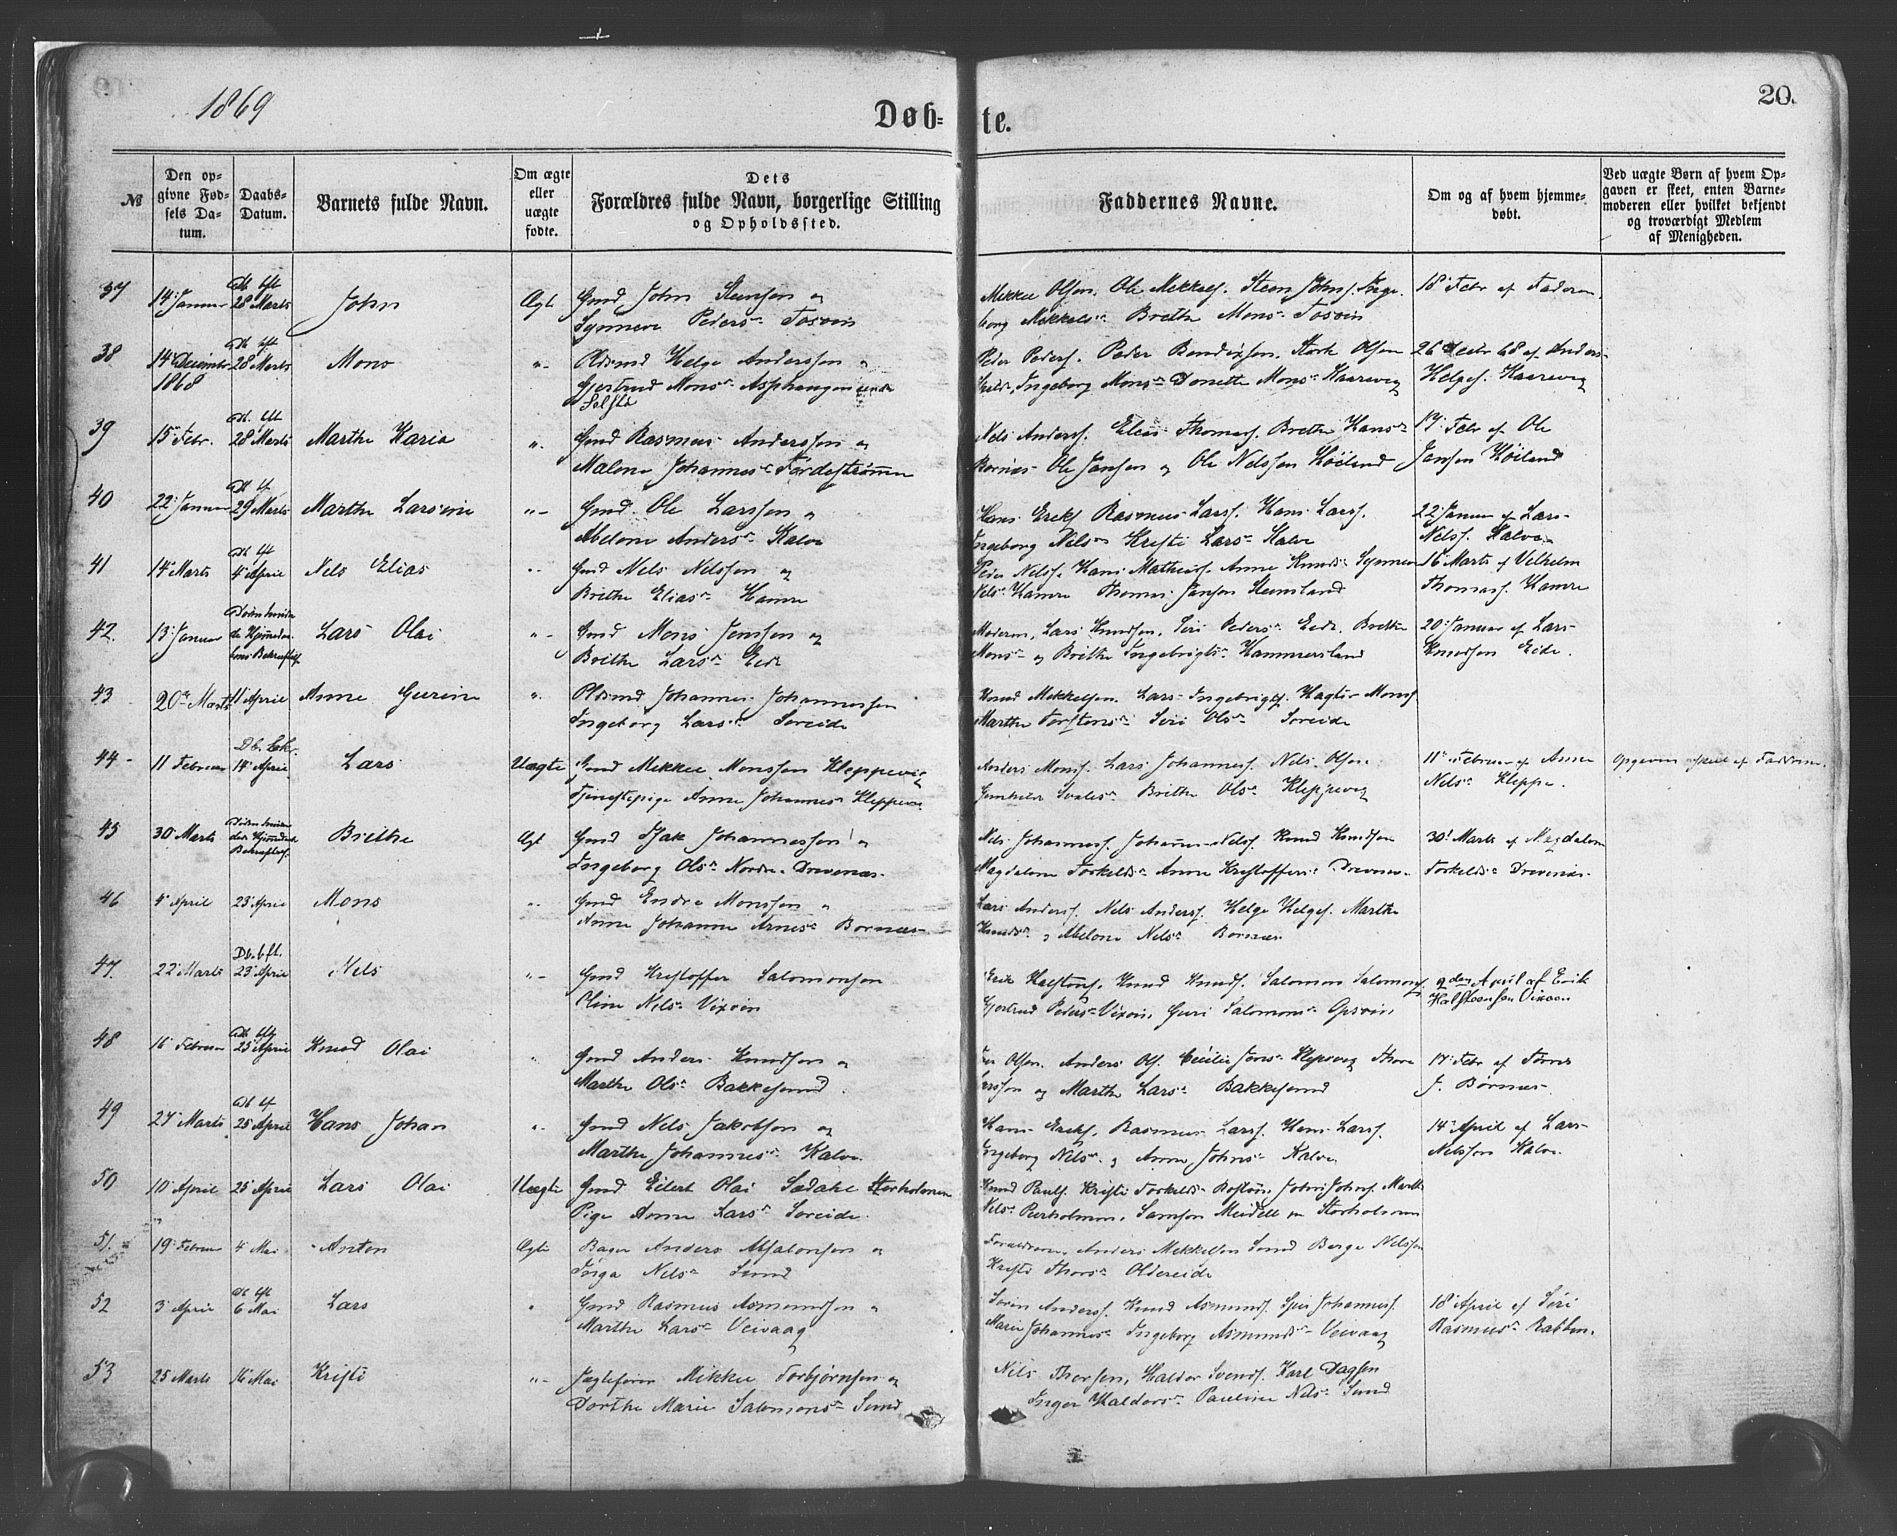 1869
Døb-te.
20.
№
Den op-
givne Fød-
sels Da-
tum.
Daabs-
Datum.
Barnets fulde Navn.
Om ægte
eller
uægte
fødte.
Dets
Forældres fulde Navn, borgerlige Stilling
og Opholdssted.
Faddernes Navne.
Om og af hvem hjemme-
døbt.
Ved uægte Børn af hvem Op-
gaven er skeet, enten Barne-
moderen eller hvilket bekjendt
og troværdigt Medlem
af Menigheden.
37 14 Januar 28 Marts John Ægt Gmd John Steensen og
Synneve Peders Tosvin
Mikkel Olsen, Ole Mikkels. Steen Johns. Inge-
borg Mikkels Brethe Mons Tosvin
18 Febr af Faderen.
38 14 December 28 Marts Mons Pldsmd Helge Anderssen
1868 Gjertrud Mons Asphaugen
Selstø
Peder Peders. Peder Bendixsen. Olsen
Ingeborg Mons Donette Mons Kaarevig
26 Decbr 68 af Anders
Helges. Kaarevig
39 15 Febr. 28 Marts Marthe Karia Gmd Rasmus Anderssen og
Malene Johannes Førdestrømmen
Nels Anders. Elias Thomas. Brethe Hans
Bornæs Ole Jansen og Ole Nelssen Høiland
17 Febr af Ole
Jansen Høiland
40 22 Januar 29 Marts Marthe Larsine Gmd Ole Larssen og
Abelone Anders Kalve
Hans Ereks. Rasmus Larss. Hans Larss.
Ingeborg Nels Kristi Lars Kalve
22 Januar af Lars
Nelss. Kalve
41 14 Marts 4 April Nels Elias Gmd Nels Nelssen og
Brethe Elias Hamre
Peder Nelss. Hans Mathias. Anne Knuds Synneve
Nels Hamre Thomas Jansen Steinsland
16 Marts af Vilhelm
Thomass. Hamre
42. 13 Januar Lars Olai Gmd Mons Jenssen og
Brithe Lars Eide
Moderen, Lars Knudsen, Siri Peders Eide. Brethe
Mons og Brithe Ingebrigts Hammersland
20 Januar af Lars
Knudsen Eide.
43 20 Marts 11 April Anne Gurine Pldsmd Johannes Johannessen
Ingeborg Lars Søreide
Knud Mikkelsen. Lars Ingebrigts. Mons.
Marthe Torstens Siri Ols Søreide
44 11 Februar 14 April Lars Uægte Gmd Mikkel Monssen Kleppevig
Tjenestepige Anne Johannes Kleppevig
Anders Mons. Lars Johannes. Nels Olsen
Brithe Ols Kleppevig
11 Februar af Anne
Nels Kleppe.
Opgaven skeet af Fadderne.
45 30 Marts Brethe Ægt Gmd Isak Johannessen og
Ingeborg Ols Nordre Drevenæs
Nels Johannes. Johannes Nels. Knud Knudsen
Magdalene Torkelds Anne Kristoffers Drevenæs
30 Marts af Magdalene
Torkelds Drevenæs
46 4 April 23 April Mons Gmd Endre Monssen og
Anne Johanne Arnes Bornæs
Lars Anderss. Nels Anderss. Helge Helges. Marthe
Knuds og Abelone Nels Bornæs
47. 22 Marts 23 April Nels Gmd Kristoffer Salomonsen
Oline Nels Vixøen
Erik Halstens. Knud Knuds. Salomon Salomons.
Gjertrud Peders Vixøen, Guri Salomons
9den April af Erik
Halsteensen Vixøen
48 16 Februar 25 April Knud Olai Gmd Anders Knudsen og
Marthe Ols Bakkesund.
Olsen. Anders Ols. Cecilie Jens Klepsvig
og Marthe Lars Bakkesund
17 Febr af
J. Børnæs
49 27 Marts 25 April Hans Johan Gmd Nels Jakobsen og
Marthe Johannes Kalve.
Hans Ereks. Rasmus Larss. Hans Larss.
Ingeborg Nels og Anne Johns Kalve
14 April af Lars
Nelssen Kalve.
50 10 April 25 April Lars Olai Uægte Gmd Eilert Olai Sadahl Storholmen
Pige Anne Lars Søreide.
Knud Pauls. Kristi Torkelds John Johns. Marthe
Nels Samson Meidell Storholmen
51. 19 Februar 4 Mai Anton Ægte Bager Anders Absalonsen og
Inga Nels Sund
Forældrene, Anders Mikkelsen Sund Berge Nelssen
Kristi Thors Oldereide
52 3 April 6 Mai Lars Gmd Rasmus Asmundsen og
Marthe Lars Veivaag
Søren Anderss. Knud Asmunds. Johannes.
Marie Johannes Ingeborg Asmunds Veivaag
18 April af Siri
Rasmus Rabben.
53 25 Marts 16 Mai Kristi Mikkel Torbjørnsen og
Dorthe Marie Salomons Sund
Nils Thorsen, Haldor Svends. Karl Dagsen
Inger Haldors Pauline Nels Sund